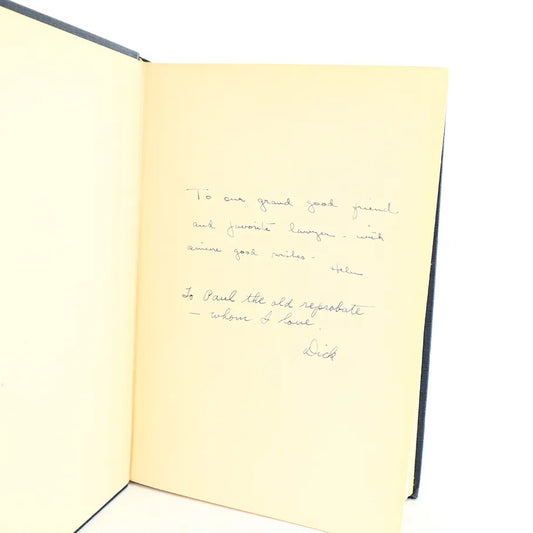 To our grand good friend
and favorite lawyer - with
sincere good wishes -
Helen
To Paul the old reprobate
— whom I love.
Dick